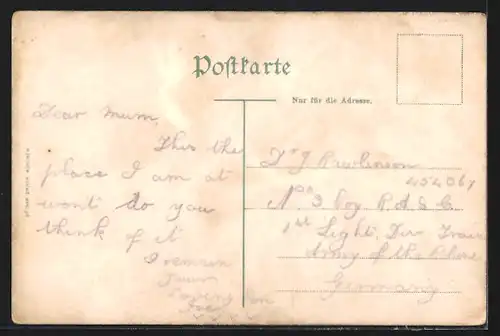 Postkarte
Nur für die Adresse.
Dear Mum,
This the
place I am at
wont do you
think of it
I remain
Your
loving Son
Joe
Dr J Rawlinson
454067
No 3 Coy R.A.S.C.
1st Light Div Train
Army of the Rhine
Germany